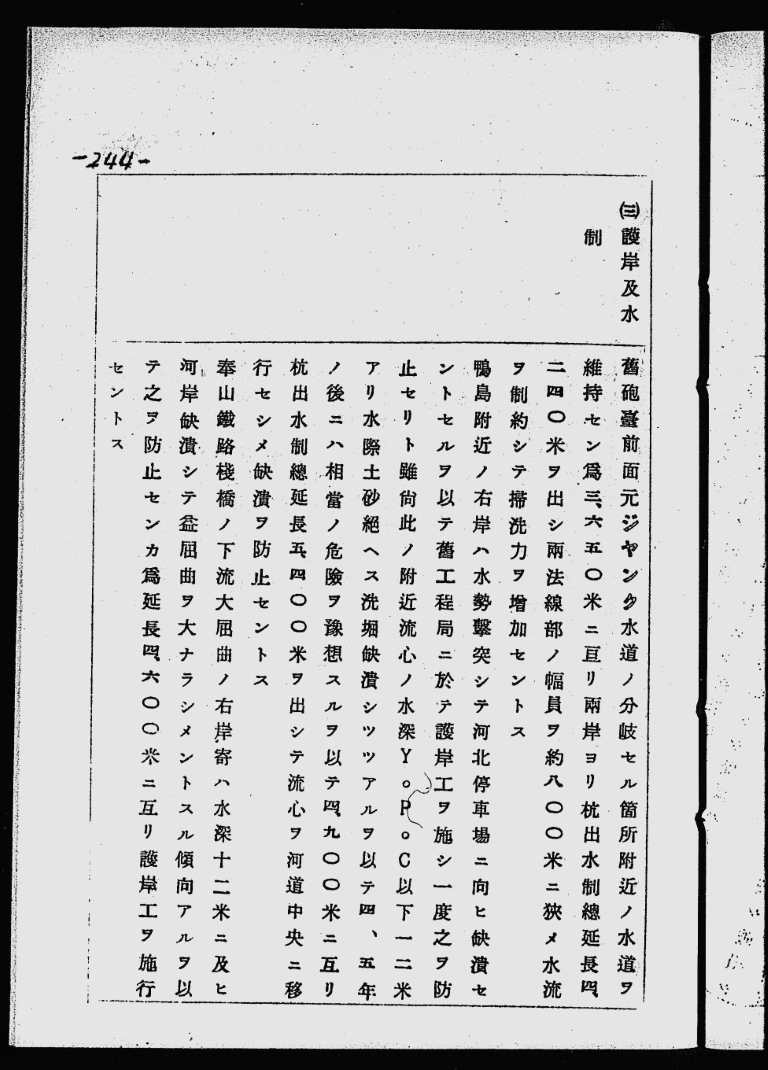 -244-
㈢護岸及水
制
舊砲臺前面元ジヤンク水道ノ分岐セル箇所附近ノ水道ヲ
維持セン爲三、六五〇米ニ亘リ兩岸ヨリ杭出水制總延長四、
二四〇米ヲ出シ兩法線部ノ幅員ヲ約八〇〇米ニ狹メ水流
ヲ制約シテ掃洗力ヲ增加セントス
鴨島附近ノ右岸ハ水勢擊突シテ河北停車場ニ向ヒ缺潰セ
ントセルヲ以テ舊工程局ニ於テ護岸工ヲ施シ一度之ヲ防
止セリト雖尙此ノ附近流心ノ水深Y。P。C以下一二米
アリ水際土砂絕ヘス洗堀缺潰シツツアルヲ以テ四、五年
ノ後ニハ相當ノ危險ヲ豫想スルヲ以テ四、九〇〇米ニ亙リ
杭出水制總延長五、四〇〇米ヲ出シテ流心ヲ河道中央ニ移
行セシメ缺潰ヲ防止セントス
奉山鐵路棧橋ノ下流大屈曲ノ右岸寄ハ水深十二米ニ及ヒ
河岸缺潰シテ益屈曲ヲ大ナラシメントスル傾向アルヲ以
テ之ヲ防止センカ爲延長四、六〇〇米ニ互リ護岸工ヲ施行
セントス